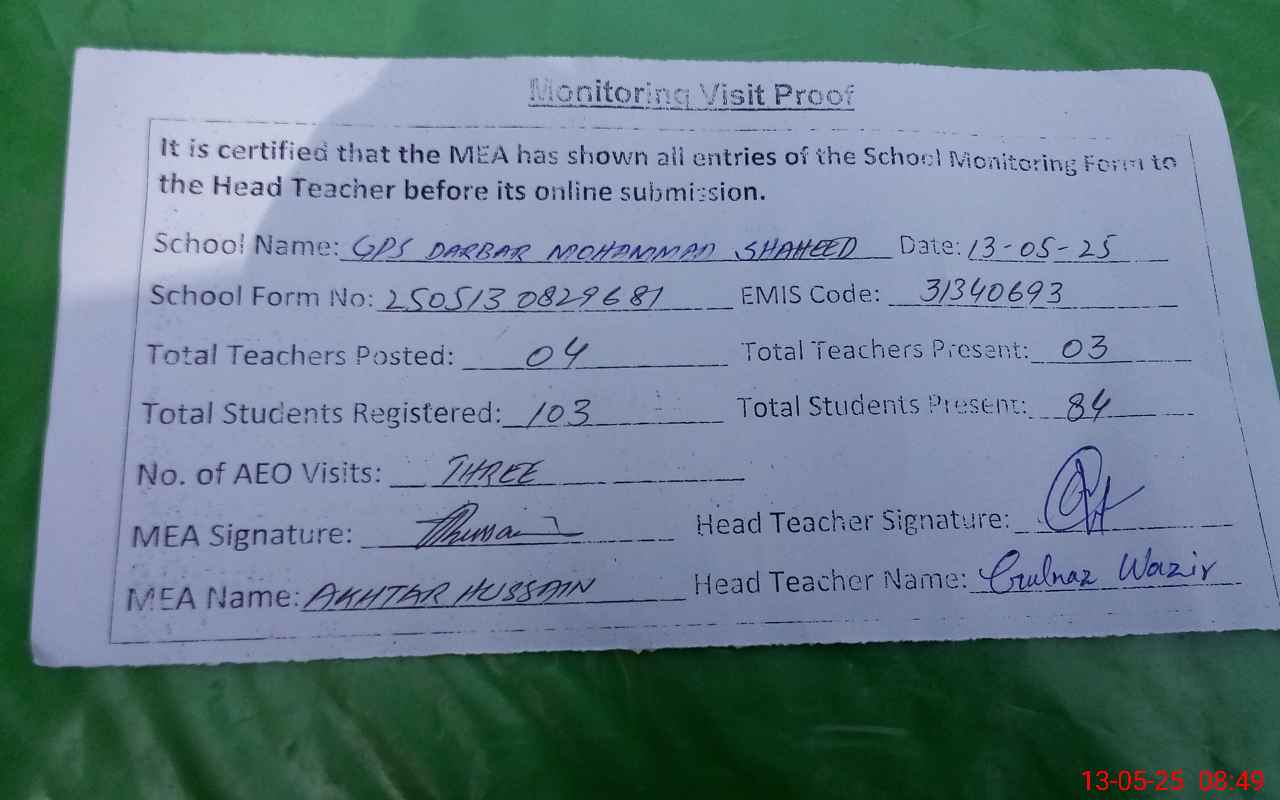 Monitoring Visit Proof
It is certified that the MEA has shown all entries of the School Monitoring Form to
the Head Teacher before its online submission.
School Name: GPS DARBAR MOHAMMAD SHAHEED Date: 13-05-25
School Form No: 2505130829681 EMIS Code: 31340693
Total Teachers Posted: 04 Total Teachers Present: 03
Total Students Registered: 103 Total Students Present: 84
No. of AEO Visits: THREE
MEA Signature: Head Teacher Signature:
MEA Name: AKHTAR HUSSAIN Head Teacher Name: Gulnaz Wazir
13-05-25 08:49